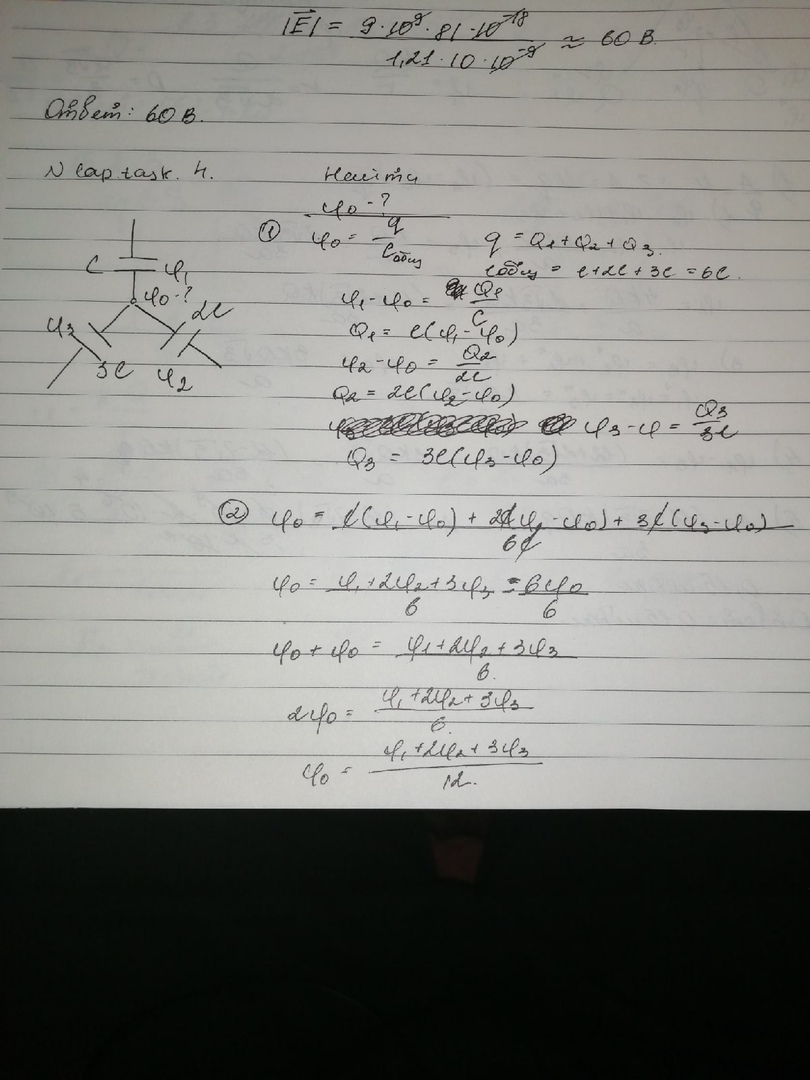 |E⃗| = 9·10⁹·81·10⁻¹⁸ / 1,21·10·10⁻⁹ ≈ 60 В.
Ответ: 60 В.
N Cap task. 4.
Найти
φ₀ - ?
① φ₀ = q / Cобщ
q = Q₁ + Q₂ + Q₃.
Cобщ = C + 2C + 3C = 6C.
C
φ₁
φ₀ - ?
2C
φ₃
3C
φ₂
φ₁ - φ₀ = Q₁ / C
Q₁ = C(φ₁ - φ₀)
φ₂ - φ₀ = Q₂ / 2C
Q₂ = 2C(φ₂ - φ₀)
φ₃ - φ = Q₃ / 3C
Q₃ = 3C(φ₃ - φ₀)
② φ₀ = C(φ₁ - φ₀) + 2C(φ₂ - φ₀) + 3C(φ₃ - φ₀) / 6C
φ₀ = φ₁ + 2φ₂ + 3φ₃ / 6 - 6φ₀ / 6
φ₀ + φ₀ = φ₁ + 2φ₂ + 3φ₃ / 6.
2φ₀ = φ₁ + 2φ₂ + 3φ₃ / 6.
φ₀ = φ₁ + 2φ₂ + 3φ₃ / 12.